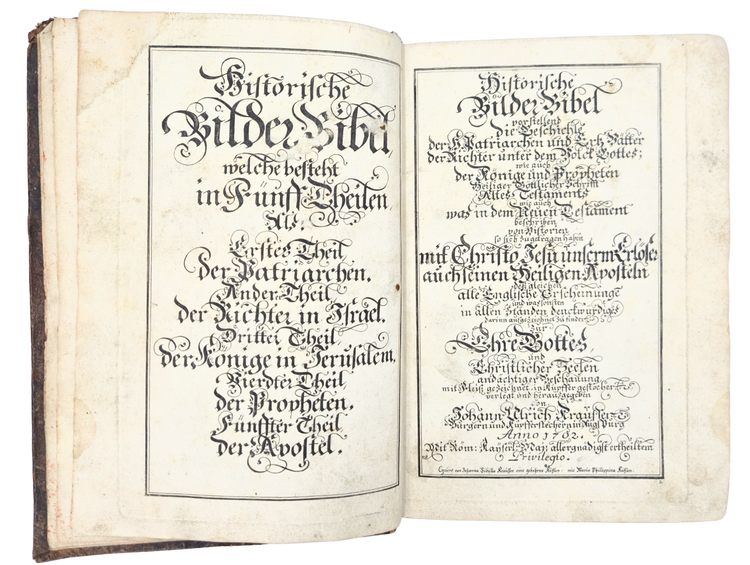 Historische
Bilder Bibel,
welche besteht
in Fünff Theilen
Als.
Erstes Theil
der Patriarchen.
Ander Theil
der Richter in Israel.
Dritter Theil
der Könige in Jerusalem.
Vierdter Theil
der Propheten.
Fünffter Theil
der Apostel.
Historische
Bilder Bibel
vorstellend
die Geschichte
der H. Patriarchen und Ertz Vätter
der Richter unter dem Volck Gottes;
wie auch
der Könige und Propheten
Heiliger Göttlicher Schrifft
Altes Testaments
wie auch
was in dem Neuen Testament
beschriben
von Historien
so sich zugetragen haben
mit Christo Jesu unserm Erlöser
auch seinen Heiligen Aposteln
den gleichen
alle Englische Erscheinunge
und was sonsten
in allen Ständen denckwürdiges
darinn aufgezeichnet zu finden
Zur
Ehre Gottes
und
Christlicher Seelen
andächtiger Beschauung
mit Fleiß gezeichnet, in Kupffer gestochen
verlegt und herausgegeben
von
Johann Ulrich Kraußen
Burgern und Kupfferstecher in Augspurg
Anno 1702.
Mit Röm: Kayserl: May: allergnädigst ertheiltem
Privilegio.
Johanna Sibilla Kraußin eine gebohrne Küslen: Maria Philippina Küslin.